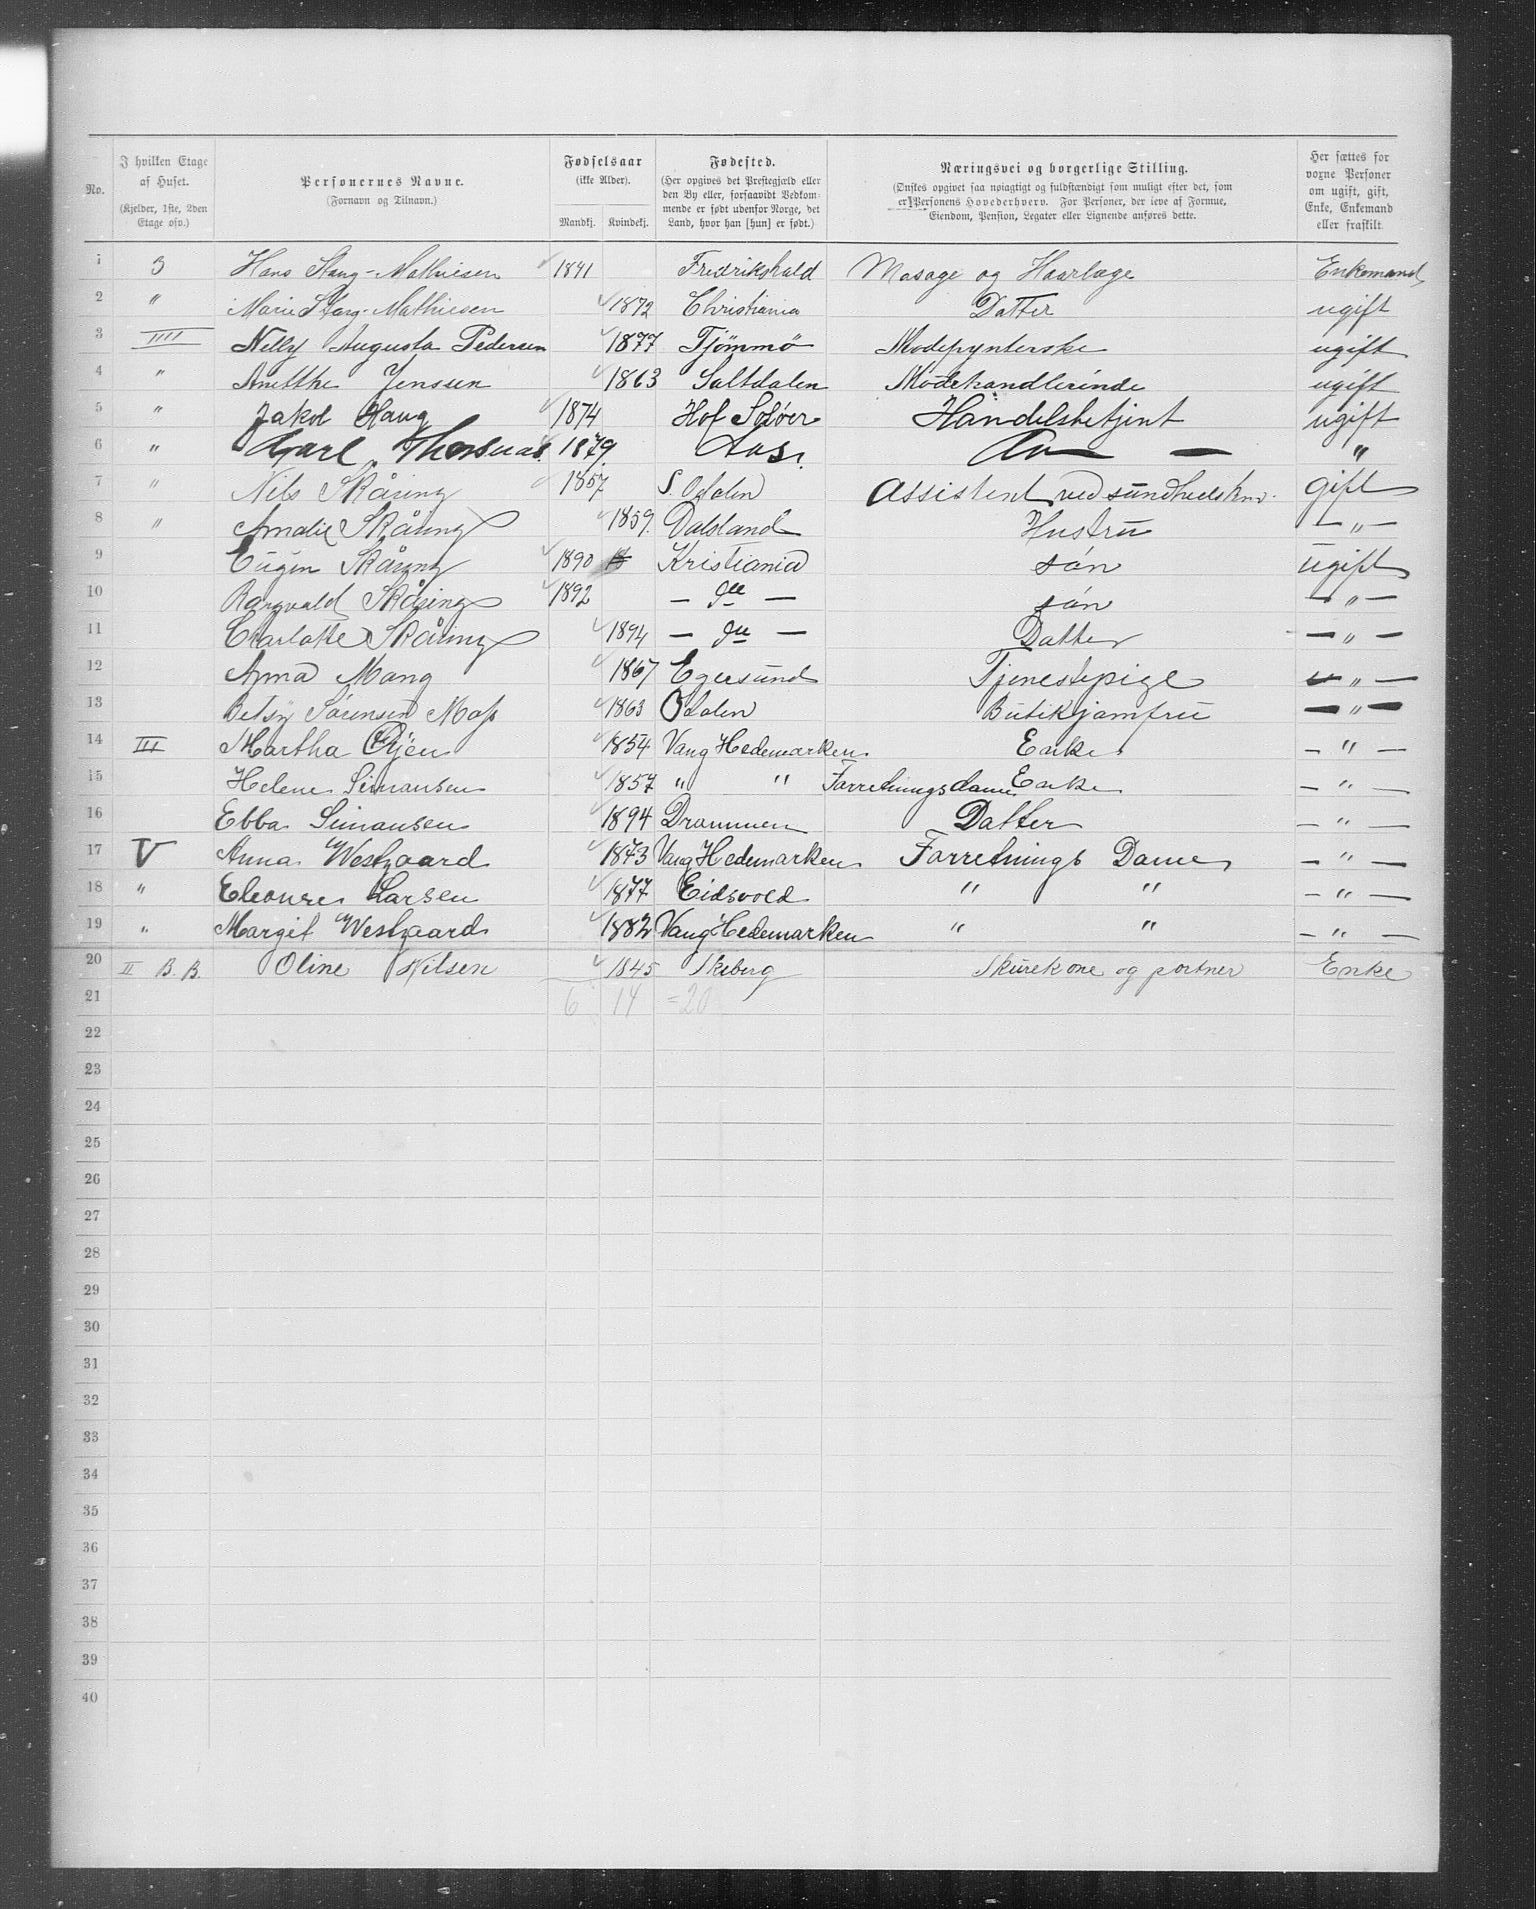 No. | I hvilken Etage af Huset. (Kjelder, 1ste, 2den Etage osv.) | Personernes Navne. (Fornavn og Tilnavn.) | Fødselsaar (ikke Alder). Mandkj. | Kvindekj. | Fødested. (Her opgives det Prestegjæld eller den By eller, forsaavidt Vedkommende er født udenfor Norge, det Land, hvor han [hun] er født.) | Næringsvei og borgerlige Stilling. (Ønskes opgivet saa nøiagtigt og fuldstændigt som muligt efter det, som er Personens Hovederhverv. For Personer, der leve af Formue, Eiendom, Pension, Legater eller Lignende anføres dette. | Her sættes for voxne Personer om ugift, gift, Enke, Enkemand eller fraskilt.
1 3 Hans Stang-Mathiesen 1841 Fredrikshald Masage og Haarlæge Enkemand
2 " Marie Stang-Mathiesen 1872 Christiania Datter ugift
3 IIII Nelly Augusta Pedersen 1877 Tjömmö Modepynterske ugift
4 " Anetthe Jenssen 1863 Saltdalen Modehandlerinde ugift
5 " Jakob Haug 1874 Hof Soløer Handelsbetjent ugift
6 " Carl Thorsnæs 1879 Aas. Do — "
7 " Nils Skåring 1857 S. Odalen Assistent ved sundhedskm. gift
8 " Amalie Skåring 1859. Dalsland Hustru — " —
9 Eugen Skåring 1890 Kristiania søn ugift
10 Rangvald Skåring 1892 — do — søn — " —
11 Charlotte Skåring 1894 — do — Datter — " —
12 Anna Mong 1867 Egersund Tjenestepige — " —
13 Betsy Sørensen Moss 1863 Odalen Butikjomfru — " —
14 III Martha Øijen 1854 Vang Hedemarken Enke — " —
15 Helene Simonsen 1857 " " Forretningsdame Enke — " —
16 Ebba Simonsen 1894 Drammen Datter — " —
17 V Anna Westgaard 1873 Vang Hedemarken Forretnings Dame — " —
18 " Eleonore Larsen 1877 Eidsvold " " — " —
19 " Margit Westgaard 1882 Vang Hedemarken " " — " —
20 II B.B. Oline Nilsen 1845 Skeberg Skurekone og portner Enke
21 6 14 =20
22
23
24
25
26
27
28
29
30
31
32
33
34
35
36
37
38
39
40